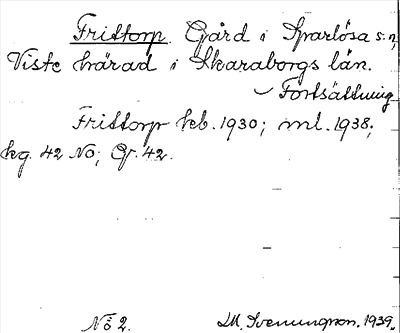 Frittorp. Gård i Sparlösa s:n,
Viste härad i Skaraborgs län.
Fortsättning
Frittorp kb. 1930; ml. 1938,
kg. 42 NO; Gf. 42.
No 2. M. Svenungson. 1939.